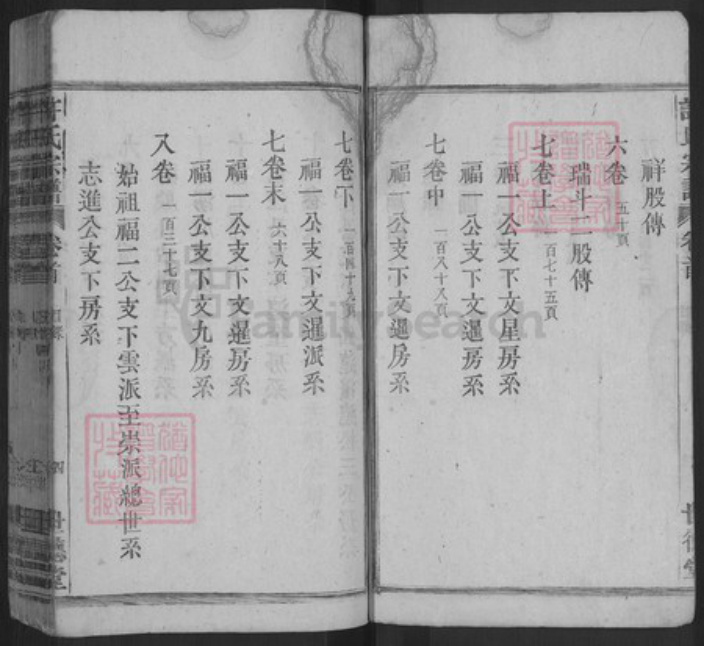 祥股傳
六卷 五十頁
瑞斗二股傳
七卷上 一百七十五頁
福一公支下文星房系
福一公支下文暹房系
七卷中 一百八十八頁
福一公支下文暹房系
七卷下 一百四十九頁
福一公支下文暹派系
七卷末 六十八頁
福一公支下文暹房系
福一公支下文九房系
八卷 一百三十七頁
始祖福二公支下雲派至崇派總世系
志進公支下房系
許氏宗譜 卷首
世德堂
FamilySearch